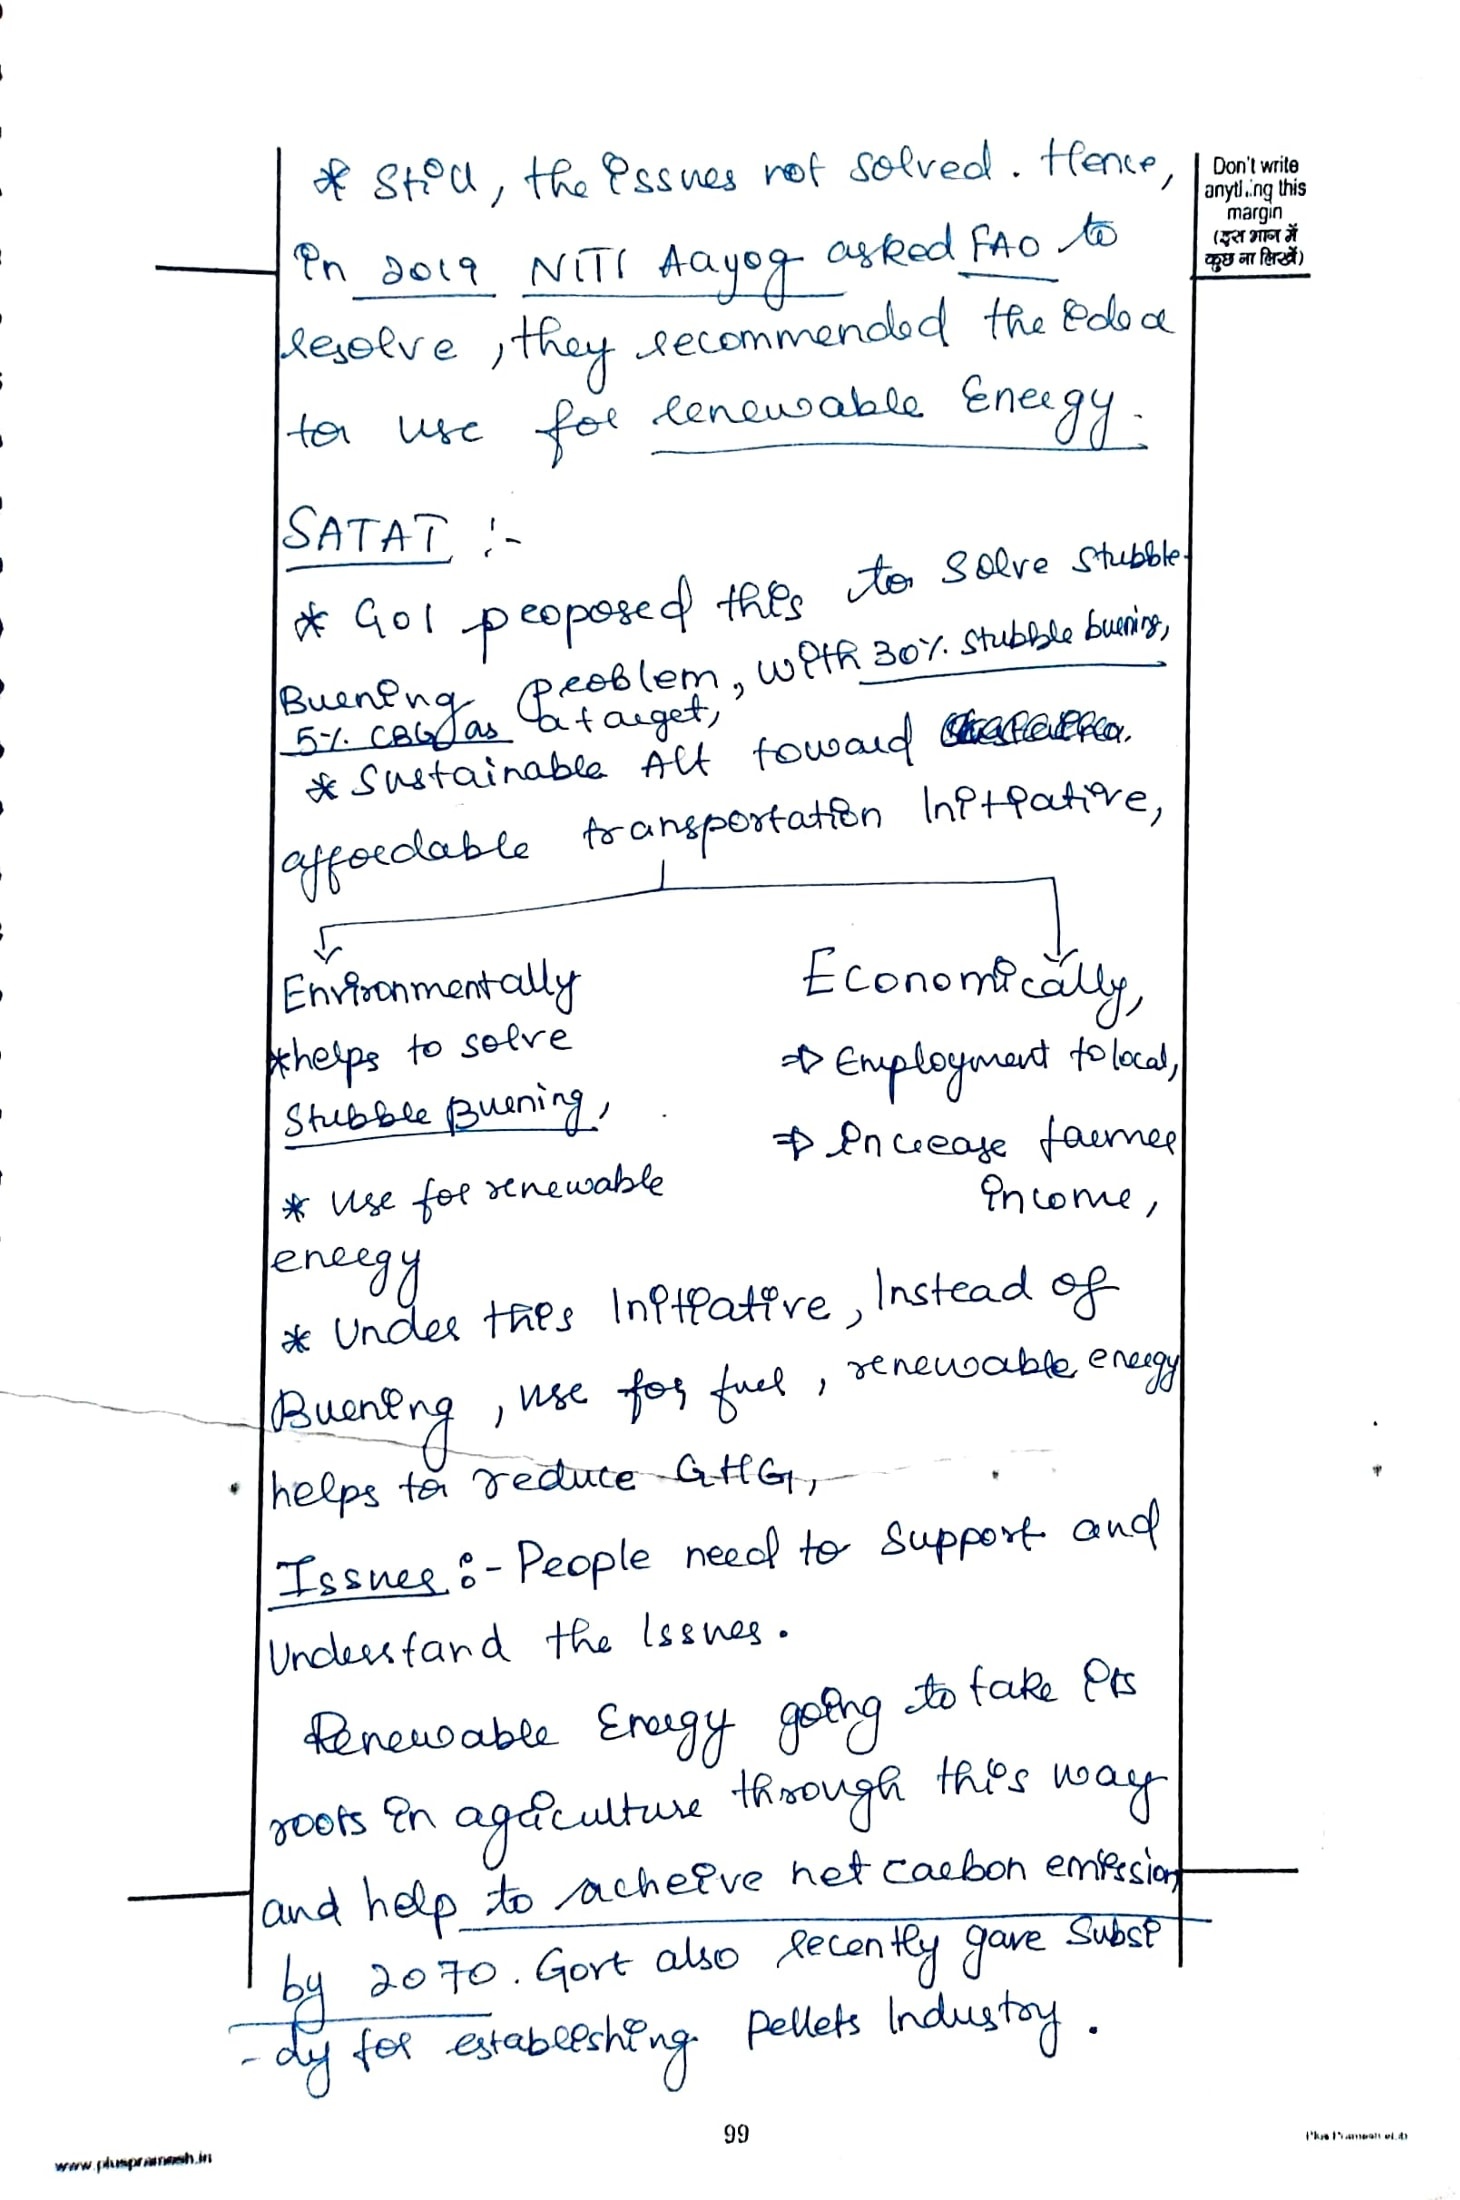 * Still, the issues not solved. Hence,
in 2019 NITI Aayog asked FAO to
resolve, they recommended the idea
to use for renewable Energy.
Don't write
anything this
margin
(इस भाग में
कुछ ना लिखें)
SATAT :-
* GoI proposed this to solve stubble
Burning problem, with 30% stubble burning,
5% CBG as a target,
* Sustainable Alt toward
affordable transportation Initiative,
Environmentally
*helps to solve
Stubble Burning,
* Use for renewable
energy
Economically,
⇒ Employment to local,
⇒ increase farmer
income,
* Under this Initiative, Instead of
Burning, use for fuel, renewable energy
helps to reduce GHG,
Issues :- People need to support and
Understand the Issues.
Renewable Energy going to take its
roots in agriculture through this way
and help to acheive net carbon emission
by 2070. Govt also recently gave Subsi
-dy for establishing Pellets Industry.
99
www.pluspramesh.in